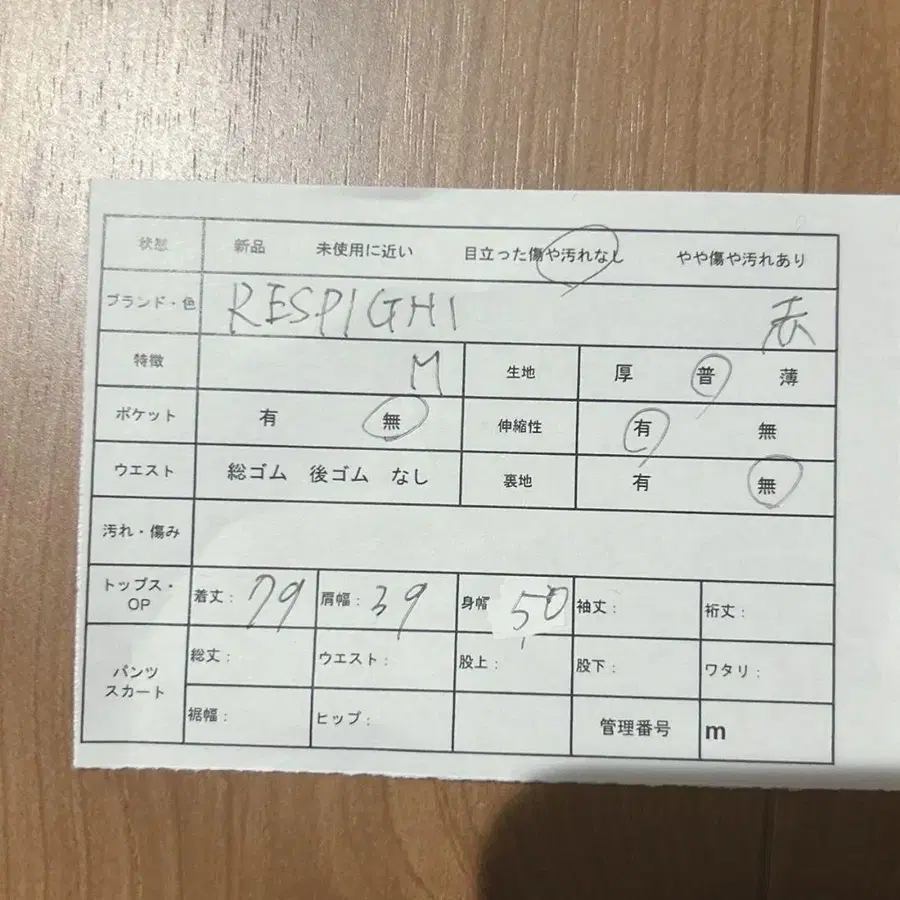 状態 新品 未使用に近い 目立った傷や汚れなし やや傷や汚れあり
ブランド・色 RESPIGHI
特徴 M 生地 厚 普 薄
ポケット 有 無 伸縮性 有 無
ウエスト 総ゴム 後ゴム なし 裏地 有 無
汚れ・傷み
トップス・OP 着丈: 79 肩幅: 39 身幅 50 袖丈: 裄丈:
パンツ スカート 総丈: ウエスト: 股上: 股下: ワタリ:
裾幅: ヒップ: 管理番号 m